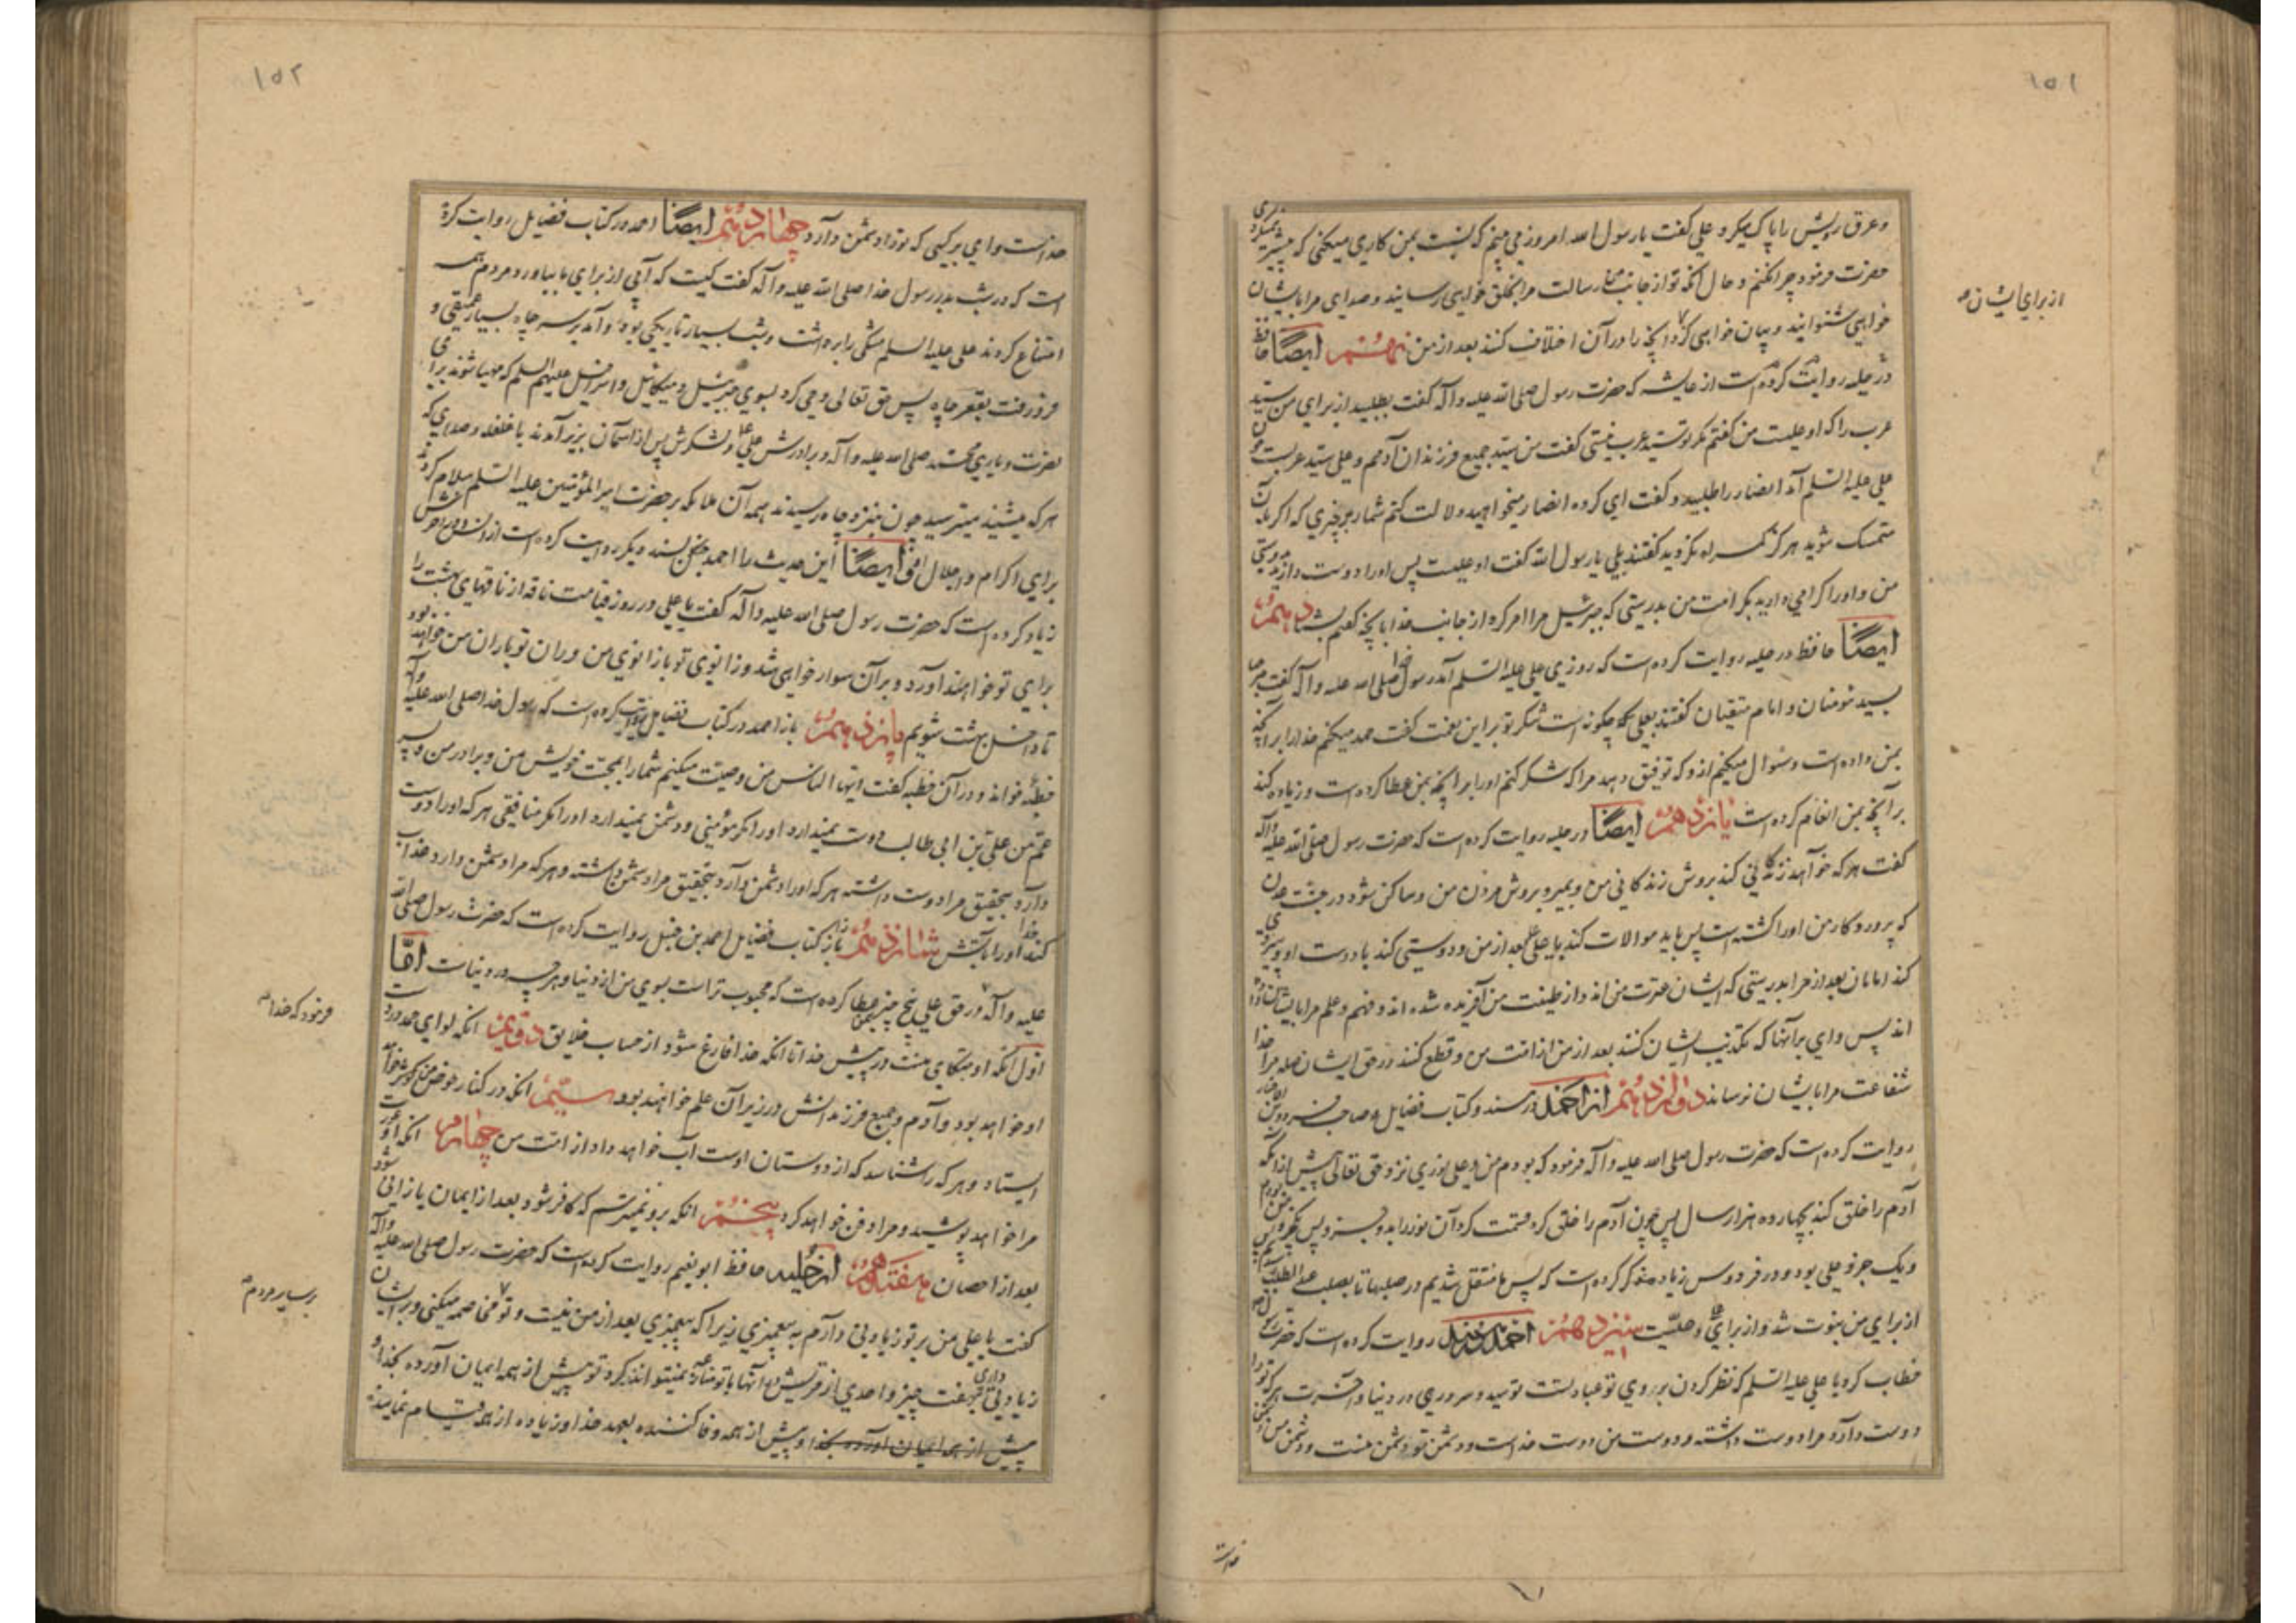 ١٥١
وعرق رویش را پاک میکرد علی گفت یا رسول الله امروز می بینم که نسبت بمن کاری میکنی که پیشتر نمیکردی
حضرت فرمود چرا نکنم و حال آنکه تو از جانب من رسالت مرا بخلق خواهی رسانید و صدای مرا بایشان
خواهی شنوانید و بیان خواهی کرد آنچه را در آن اختلاف کنند بعد از من نهم ایضاً حافظ
در حلیه روایت کرده است از عایشه که حضرت رسول صلی الله علیه وآله گفت بطلبید از برای من سید
عرب را که او علیست من گفتم مگر تو سید عرب نیستی گفت من سید جمیع فرزندان آدمم و علی سید عربست چون
علی علیه السلم آمد انصار را طلبید و گفت ای گروه انصار میخواهید دلالت کنم شما را بر چیزی که اگر بآن
متمسک شوید هرگز گمراه نگردید گفتند بلی یا رسول الله گفت او علیست پس او را دوست دارید بدوستی
من و او را گرامی دارید بکرامت من بدرستی که جبرئیل مرا امر کرد از جانب خدا بآنچه گفتم بشما دهم
ایضاً حافظ در حلیه روایت کرده است که روزی علی علیه السلم آمد رسول خدا صلی الله علیه وآله گفت مرحبا
بسید مؤمنان و امام متقیان گفتند بعلی که چگونه است شکر تو بر این نعمت گفت حمد میکنم خدا را بر آنچه
بمن داده است و سئوال میکنم از او که توفیق دهد مرا که شکر کنم او را بر آنچه بمن عطا کرده است و زیاده کند
بر آنچه بمن انعام کرده است یازدهم ایضاً در حلیه روایت کرده است که حضرت رسول صلی الله علیه وآله
گفت هر که خواهد زندگانی کند بروش زندگانی من و بمیرد بروش مردن من و ساکن شود در جنت عدن
که پروردگار من او را کشته است پس باید موالات کند با علی بعد از من و دوستی کند با دوست او و پیروی
کند امامان بعد از مرا بدرستی که ایشان عترت من اند و از طینت من آفریده شده اند و فهم و علم مرا بایشان داده
اند پس وای بر آنها که تکذیب ایشان کنند بعد از من از امت من و قطع کنند در حق ایشان صله مرا خدا
شفاعت مرا بایشان نرساند دوازدهم از احمد در مسند و کتاب فضایل و صاحب فردوس الاخبار
روایت کرده است که حضرت رسول صلی الله علیه وآله فرمود که بودم من و علی نوری نزد حق تعالی پیش از آنکه
آدم را خلق کند بچهارده هزار سال پس چون آدم را خلق کرد قسمت کرد آن نور را بدو جزو پس یکجزو من بودم
و یک جزو علی بود و در فردوس زیاده مذکور کرده است که پس ما منتقل شدیم در صلبها تا بصلب عبد المطلب رسیدیم پس
از برای من نبوت شد و از برای علی وصیت سیزدهم احمد بن حنبل روایت کرده است که حضرت رسول ص
خطاب کرد با علی علیه السلم که نظر کردن بروی تو عبادتست تو سید و سروری در دنیا و آخرت هر که تو را
دوست دارد مرا دوست داشته و دوست من دوست خداست و دشمن تو دشمن منست و دشمن من دشمن
از برای ایشان ص
خداست
١٥٢
خداست وای بر کسی که تو را دشمن دارد چهاردهم ایضاً احمد در کتاب فضایل روایت کرده
است که در شب بدر رسول خدا صلی الله علیه وآله گفت کیست که آبی از برای ما بیاورد مردم همه
امتناع کردند علی علیه السلم مشکی را برداشت و شب بسیار تاریکی بود و آمد بر سر چاه بسیار عمیقی و
فرو رفت بقعر چاه پس حق تعالی وحی کرد بسوی جبرئیل و میکائیل و اسرافیل علیهم السلم که مهیا شوند برای
نصرت و یاری محمد صلی الله علیه وآله و برادرش علی و لشکرش پس از آسمان بزیر آمدند با غلغله و صدایی که
هر که میشنید میترسید چون بنزد چاه رسیدند همه آن ملائکه بر حضرت امیر المؤمنین علیه السلم سلام کردند
برای اکرام و اجلال او ایضاً این حدیث را احمد حنبل بسند دیگر روایت کرده است از انس و در آخرش
زیاد کرده است که حضرت رسول صلی الله علیه وآله گفت یا علی در روز قیامت ناقه از ناقهای بهشت را
برای تو خواهند آورد و بر آن سوار خواهی شد و زانوی تو با زانوی من و ران تو با ران من خواهد بود
تا داخل بهشت شویم پانزدهم باز احمد در کتاب فضایل روایت کرده است که رسول خدا صلی الله علیه وآله
خطبه خواند و در آن خطبه گفت ایها الناس من وصیت میکنم شما را بمحبت خویش من و برادر من و پسر
عم من علی بن ابی طالب دوست نمیدارد او را مگر مؤمنی و دشمن نمیدارد او را مگر منافقی هر که او را دوست
دارد بتحقیق مرا دوست داشته هر که او را دشمن دارد بتحقیق مرا دشمن داشته و هر که مرا دشمن دارد عذاب
کند خدا او را بآتش شانزدهم باز از کتاب فضایل احمد بن حنبل روایت کرده است که حضرت رسول صلی الله
علیه وآله در حق علی پنج چیز بمن عطا کرده است که محبوب تر است بسوی من از دنیا و هرچه در دنیاست امّا
اول آنکه او متکای منست در پیش خدا تا آنکه خدا فارغ شود از حساب خلایق دوّیم آنکه لوای حمد در دست
او خواهد بود و آدم و جمیع فرزندانش در زیر آن علم خواهند بود سیّم آنکه در کنار حوض کوثر خواهد
ایستاد و هر که را شناسد که از دوستان اوست آب خواهد داد از امت من چهارم آنکه او عورت
مرا خواهد پوشید و مرا دفن خواهد کرد پنجم آنکه بر او نمیترسم که کافر شود بعد از ایمان یا زانی شود
بعد از احصان هفتدهم از حلیه حافظ ابو نعیم روایت کرده است که حضرت رسول صلی الله علیه وآله
گفت یا علی من بر تو زیادتی دارم به پیغمبری زیرا که پیغمبری بعد از من نیست و تو مخاصمه میکنی و بر ایشان
زیادتی داری بهفت چیز و احدی از قریش در آنها با تو منازعه نمیتواند کرد تو پیش از همه ایمان آورده بخدا و
پیش از همه ایمان آورده بخدا و پیش از همه وفا کننده بعهد خدا و زیاده از همه قیام نماینده
فرمود که خدا ص
بر سایر مردم ص